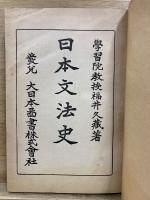 學習院教授福井久藏著
日本文法史
發兌 大日本圖書株式會社